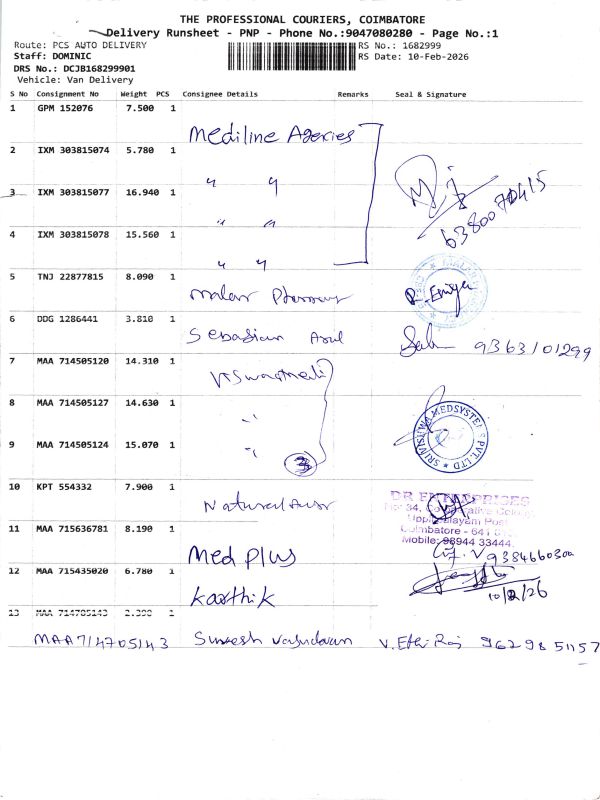 THE PROFESSIONAL COURIERS, COIMBATORE
Delivery Runsheet - PNP - Phone No.:9047080280 - Page No.:1
Route: PCS AUTO DELIVERY
RS No.: 1682999
Staff: DOMINIC
RS Date: 10-Feb-2026
DRS No.: DCJB168299901
Vehicle: Van Delivery
S No Consignment No Weight PCS Consignee Details Remarks Seal & Signature
1 GPM 152076 7.500 1
Mediline Agencies
2 IXM 303815074 5.780 1
" "
3 IXM 303815077 16.940 1
" "
6380070415
4 IXM 303815078 15.560 1
" "
5 TNJ 22877815 8.090 1
malar Pharmacy
6 DDG 1286441 3.810 1
Sebastian 9363101299
7 MAA 714505120 14.310 1
8 MAA 714505127 14.630 1
"
SRI VISHWA MEDSYSTEMS PVT. LTD
9 MAA 714505124 15.070 1
"
3
10 KPT 554332 7.900 1
DR ENTERPRISES
No 34, Co-operative Colony
Uppilipalayam Post
Coimbatore - 641
Mobile: 98944 33444
11 MAA 715636781 8.190 1
Med Plus
12 MAA 715435020 6.780 1
Karthik 10/2/26
13 MAA 714705143 2.390 1
MAA714705143 Suresh Vasudevan 9629851157